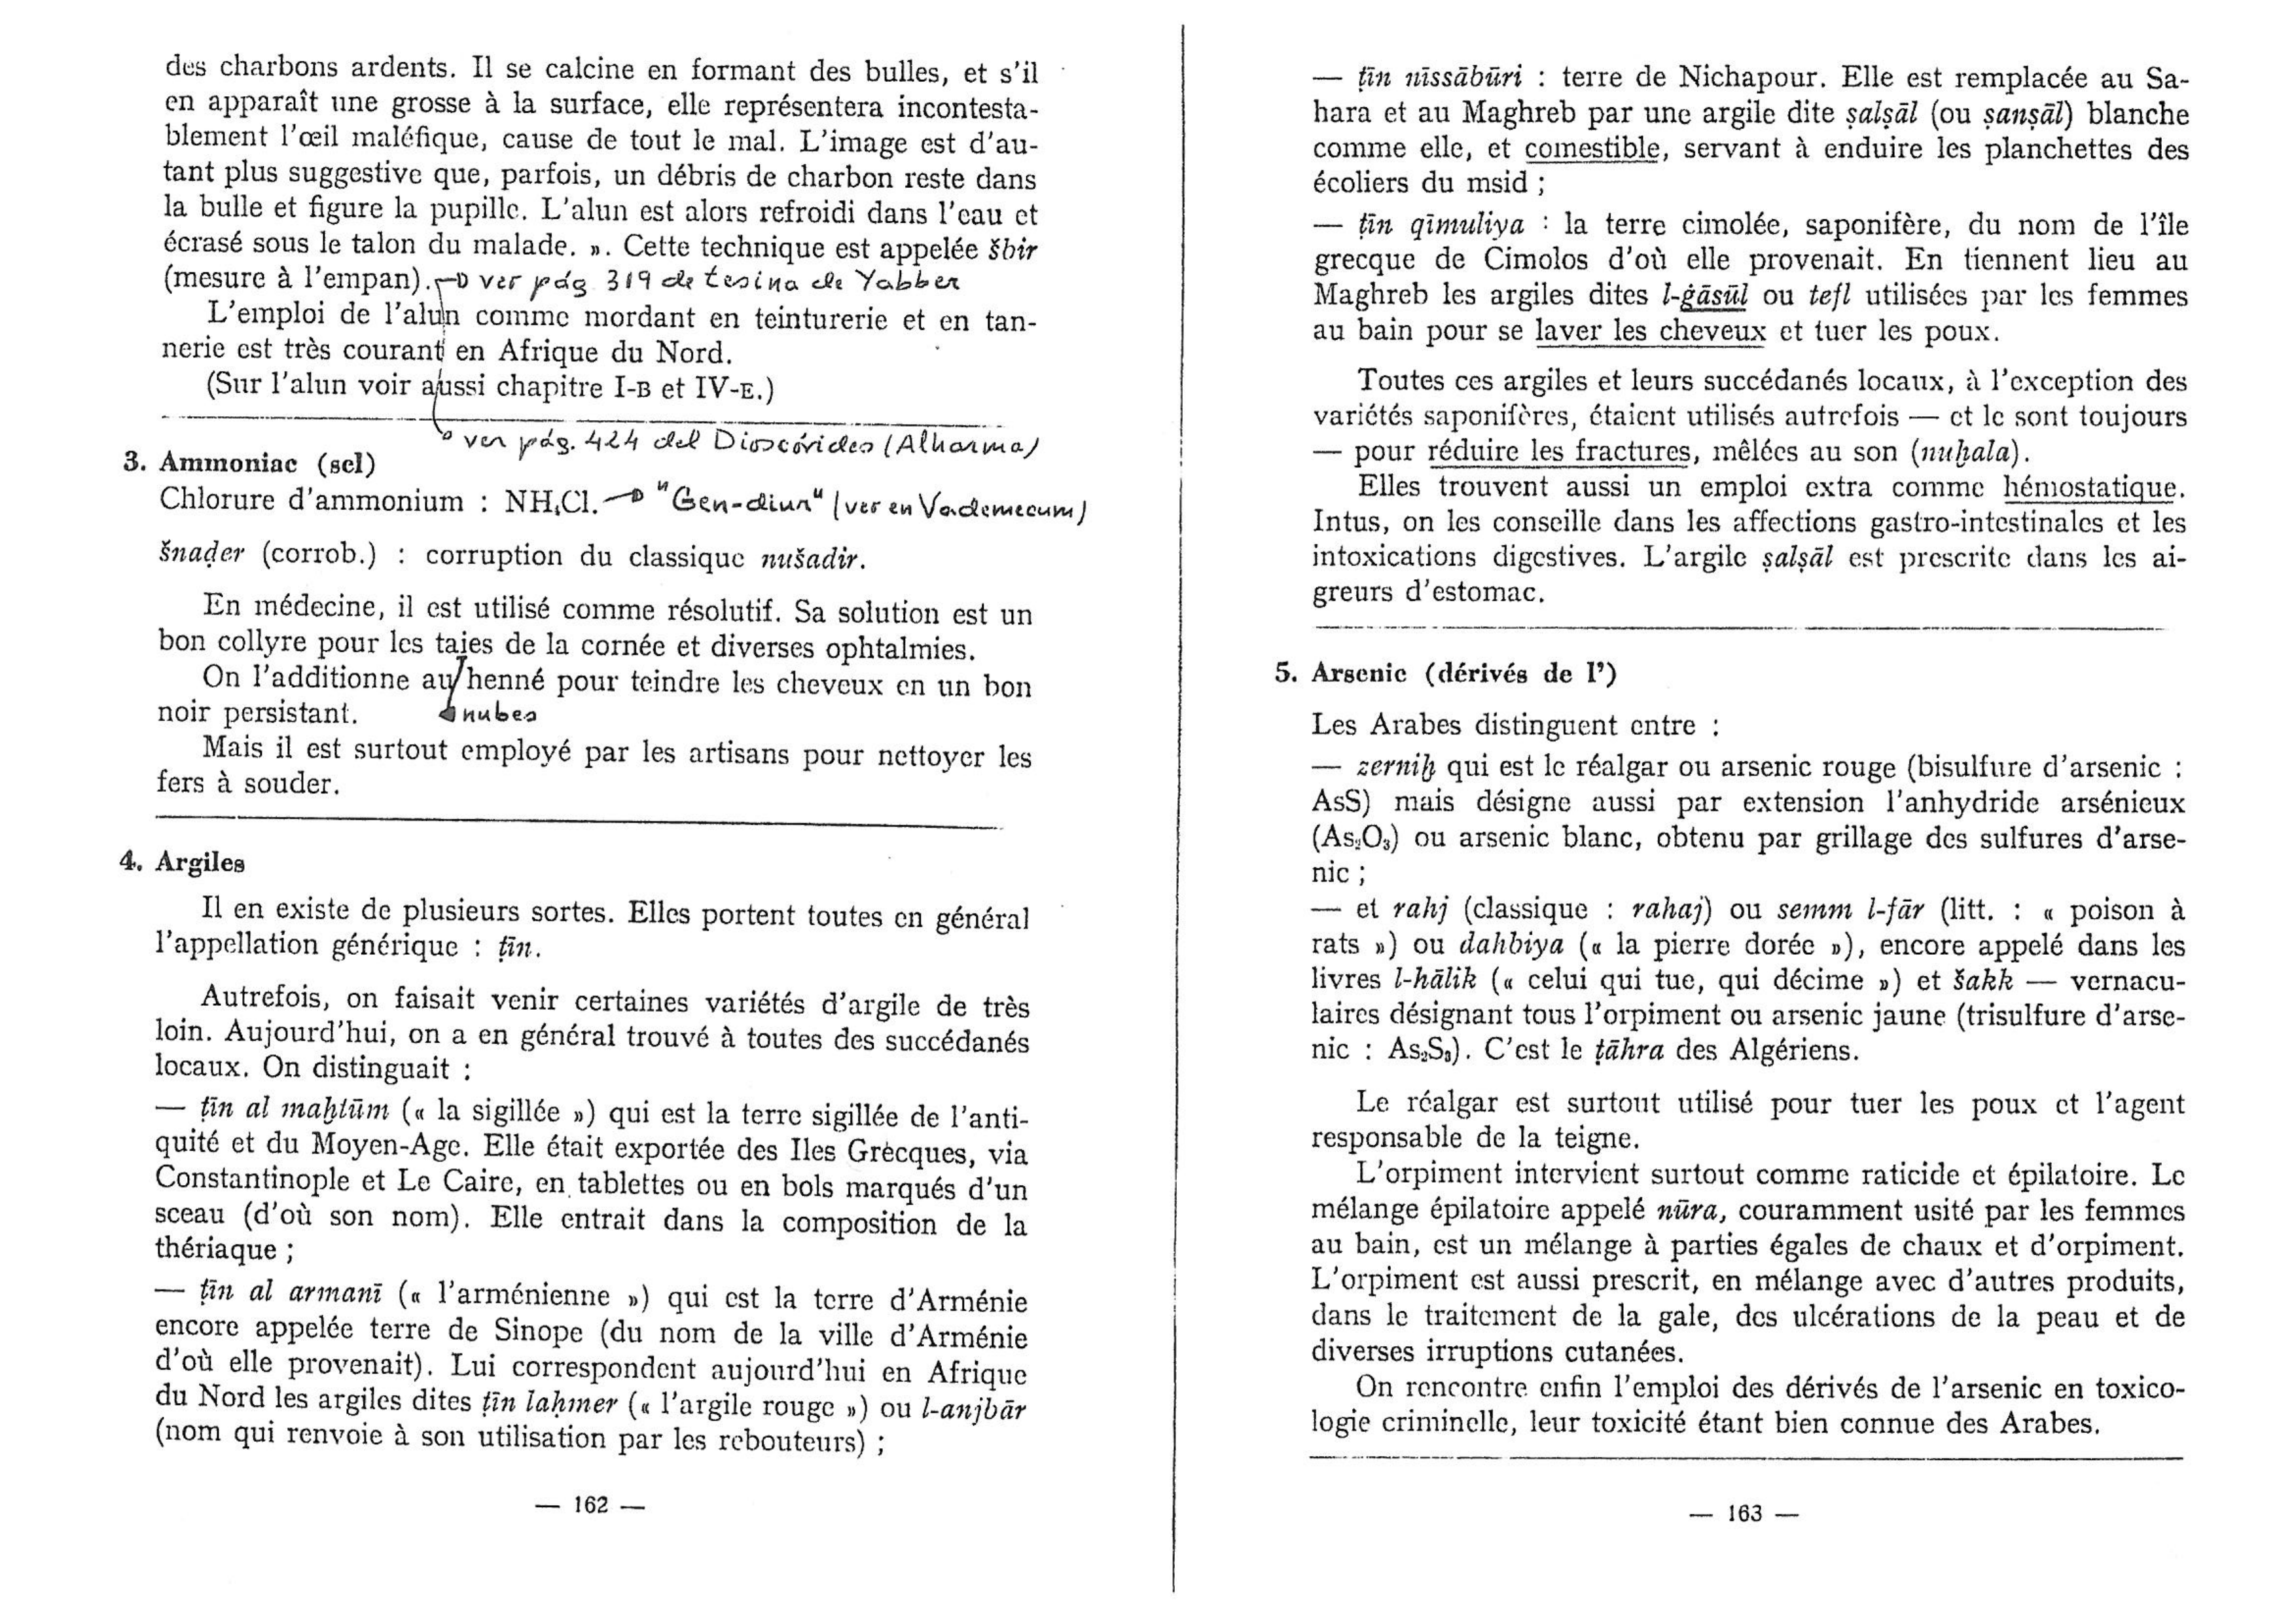 des charbons ardents. Il se calcine en formant des bulles, et s'il
en apparaît une grosse à la surface, elle représentera incontesta-
blement l'œil maléfique, cause de tout le mal. L'image est d'au-
tant plus suggestive que, parfois, un débris de charbon reste dans
la bulle et figure la pupille. L'alun est alors refroidi dans l'eau et
écrasé sous le talon du malade. ». Cette technique est appelée šbir
(mesure à l'empan). ver pág 319 de tesina de Yabber
L'emploi de l'alun comme mordant en teinturerie et en tan-
nerie est très courant en Afrique du Nord.
(Sur l'alun voir aussi chapitre I-B et IV-E.)
ver pág. 424 del Dioscórides (Alharma)
3. Ammoniac (sel)
Chlorure d'ammonium : NH₄Cl. "Gen-diur" (ver en Vademecum)
šnaḍer (corrob.) : corruption du classique nušadir.
En médecine, il est utilisé comme résolutif. Sa solution est un
bon collyre pour les taies de la cornée et diverses ophtalmies.
On l'additionne au henné pour teindre les cheveux en un bon
noir persistant. nubes
Mais il est surtout employé par les artisans pour nettoyer les
fers à souder.
4. Argiles
Il en existe de plusieurs sortes. Elles portent toutes en général
l'appellation générique : ṭīn.
Autrefois, on faisait venir certaines variétés d'argile de très
loin. Aujourd'hui, on a en général trouvé à toutes des succédanés
locaux. On distinguait :
— ṭīn al maḫtūm (« la sigillée ») qui est la terre sigillée de l'anti-
quité et du Moyen-Age. Elle était exportée des Iles Grecques, via
Constantinople et Le Caire, en tablettes ou en bols marqués d'un
sceau (d'où son nom). Elle entrait dans la composition de la
thériaque ;
— ṭīn al armanī (« l'arménienne ») qui est la terre d'Arménie
encore appelée terre de Sinope (du nom de la ville d'Arménie
d'où elle provenait). Lui correspondent aujourd'hui en Afrique
du Nord les argiles dites ṭīn laḥmer (« l'argile rouge ») ou l-anjbār
(nom qui renvoie à son utilisation par les rebouteurs) ;
— 162 —
— ṭīn nīssābūri : terre de Nichapour. Elle est remplacée au Sa-
hara et au Maghreb par une argile dite ṣalṣāl (ou ṣanṣāl) blanche
comme elle, et comestible, servant à enduire les planchettes des
écoliers du msid ;
— ṭīn qīmuliya : la terre cimolée, saponifère, du nom de l'île
grecque de Cimolos d'où elle provenait. En tiennent lieu au
Maghreb les argiles dites l-ġāsūl ou tefl utilisées par les femmes
au bain pour se laver les cheveux et tuer les poux.
Toutes ces argiles et leurs succédanés locaux, à l'exception des
variétés saponifères, étaient utilisés autrefois — et le sont toujours
— pour réduire les fractures, mêlées au son (nuḫala).
Elles trouvent aussi un emploi extra comme hémostatique.
Intus, on les conseille dans les affections gastro-intestinales et les
intoxications digestives. L'argile ṣalṣāl est prescrite dans les ai-
greurs d'estomac.
5. Arsenic (dérivés de l')
Les Arabes distinguent entre :
— zerniḫ qui est le réalgar ou arsenic rouge (bisulfure d'arsenic :
AsS) mais désigne aussi par extension l'anhydride arsénieux
(As₂O₃) ou arsenic blanc, obtenu par grillage des sulfures d'arse-
nic ;
— et rahj (classique : rahaj) ou semm l-fār (litt. : « poison à
rats ») ou dahbiya (« la pierre dorée »), encore appelé dans les
livres l-hālik (« celui qui tue, qui décime ») et šakk — vernacu-
laires désignant tous l'orpiment ou arsenic jaune (trisulfure d'arse-
nic : As₂S₃). C'est le ṭāhra des Algériens.
Le réalgar est surtout utilisé pour tuer les poux et l'agent
responsable de la teigne.
L'orpiment intervient surtout comme raticide et épilatoire. Le
mélange épilatoire appelé nūra, couramment usité par les femmes
au bain, est un mélange à parties égales de chaux et d'orpiment.
L'orpiment est aussi prescrit, en mélange avec d'autres produits,
dans le traitement de la gale, des ulcérations de la peau et de
diverses irruptions cutanées.
On rencontre enfin l'emploi des dérivés de l'arsenic en toxico-
logie criminelle, leur toxicité étant bien connue des Arabes.
— 163 —